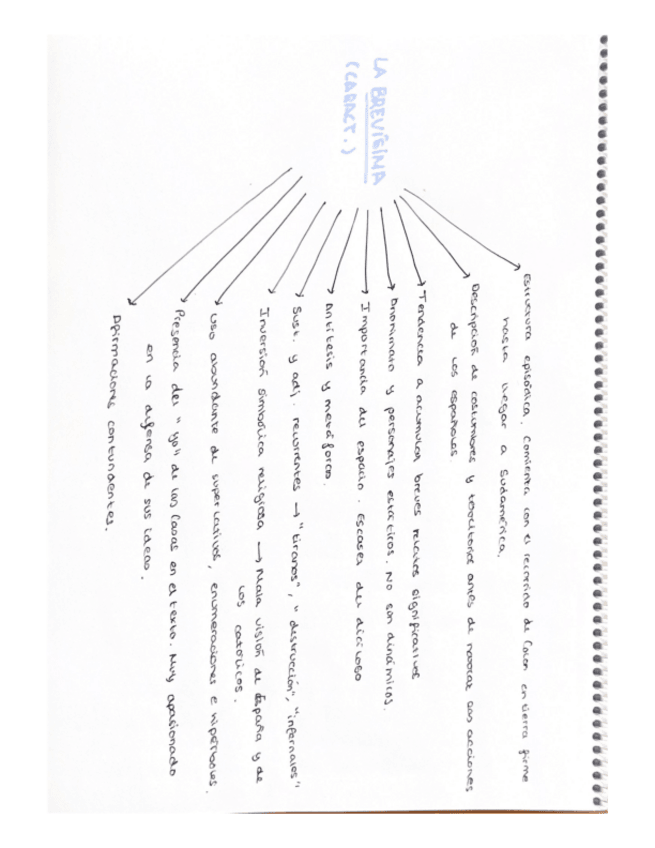 LA BREVÍSIMA
(CARACT.)
Estructura episódica. Comienza con el recorrido de Colón en tierra firme
hasta llegar a Sudamérica.
Descripción de costumbres y territorios antes de narrar las acciones
de los españoles.
Tendencia a acumular breves relatos significativos
Anonimato y personajes estáticos. No son dinámicos.
Importancia del espacio. Escasez del diálogo
Antítesis y metáforas.
Sust. y adj. recurrentes → "tiranos", "destrucción", "infernales"
Inversión simbólica religiosa → Mala visión de España y de
los católicos.
Uso abundante de superlativos, enumeraciones e hipérboles.
Presencia del "yo" de las Casas en el texto. Muy apasionado
en la defensa de sus ideas.
Afirmaciones contundentes.